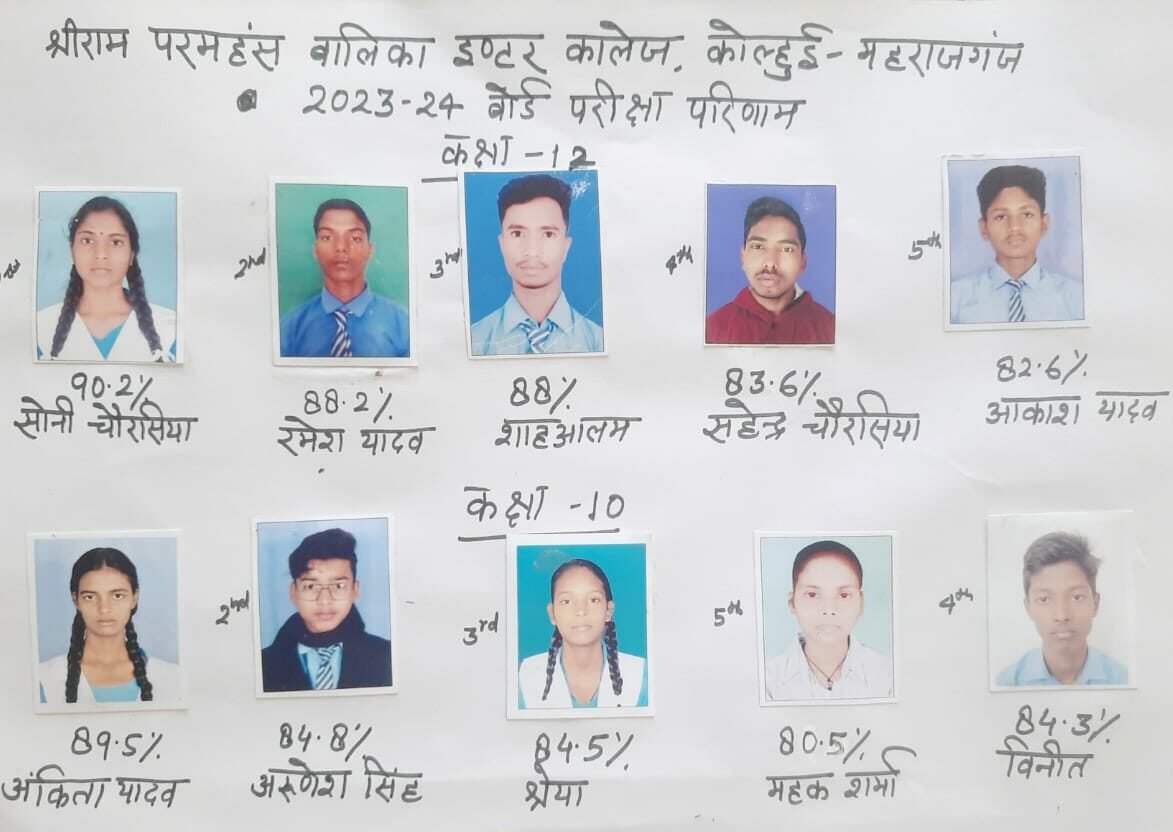 श्रीराम परमहंस बालिका इण्टर कालेज, कोल्हुई-महराजगंज
2023-24 बोर्ड परीक्षा परिणाम
कक्षा -12
1st 2nd 3rd 4th 5th
90.2% 88.2% 88% 83.6% 82.6%
सोनी चौरसिया रमेश यादव शाहआलम सहेन्द्र चौरसिया आकाश यादव
कक्षा -10
2nd 3rd 5th 4th
89.5% 84.8% 84.5% 80.5% 84.3%
अंकिता यादव अरुणेश सिंह श्रेया महक शर्मा विनीत